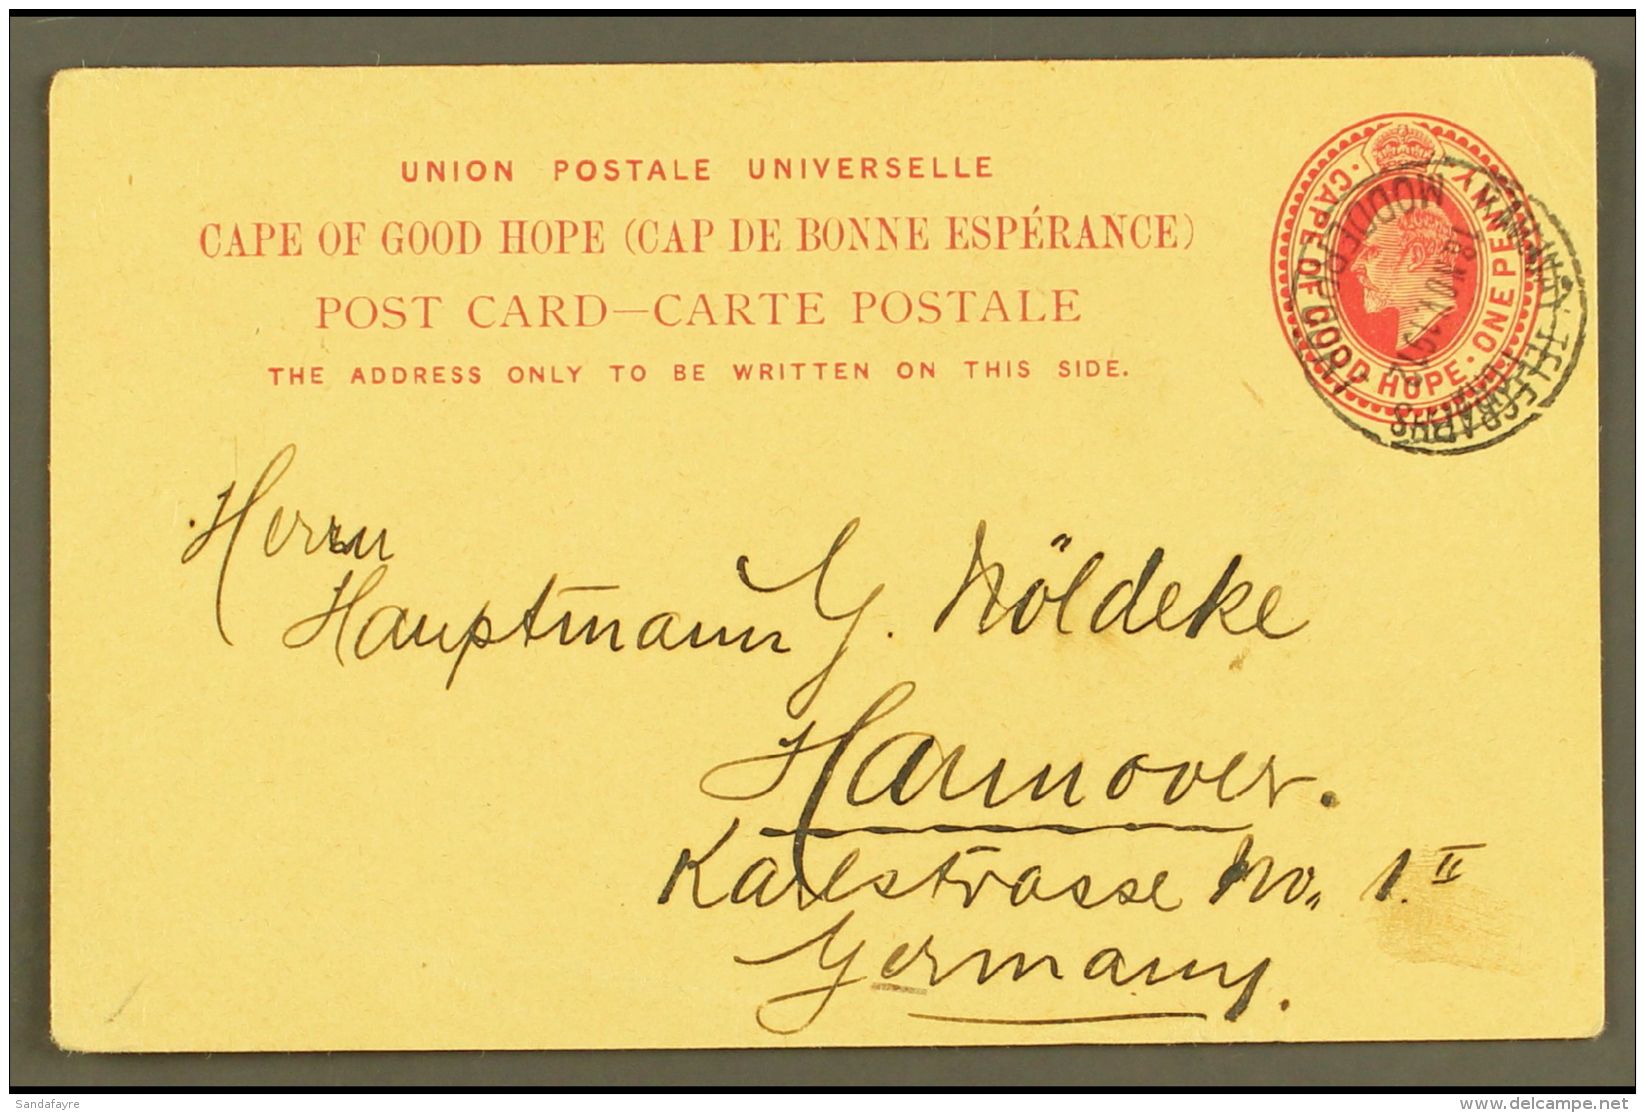 UNION POSTALE UNIVERSELLE
CAPE OF GOOD HOPE (CAP DE BONNE ESPÉRANCE)
POST CARD—CARTE POSTALE
THE ADDRESS ONLY TO BE WRITTEN ON THIS SIDE.
· CAPE OF GOOD HOPE · ONE PENNY
TELEGRAPHS
Herrn
Hauptmann G. Nöldeke
Hannover.
Karlstrasse No. 1.II
Germany.
Sandafayre
www.delcampe.net